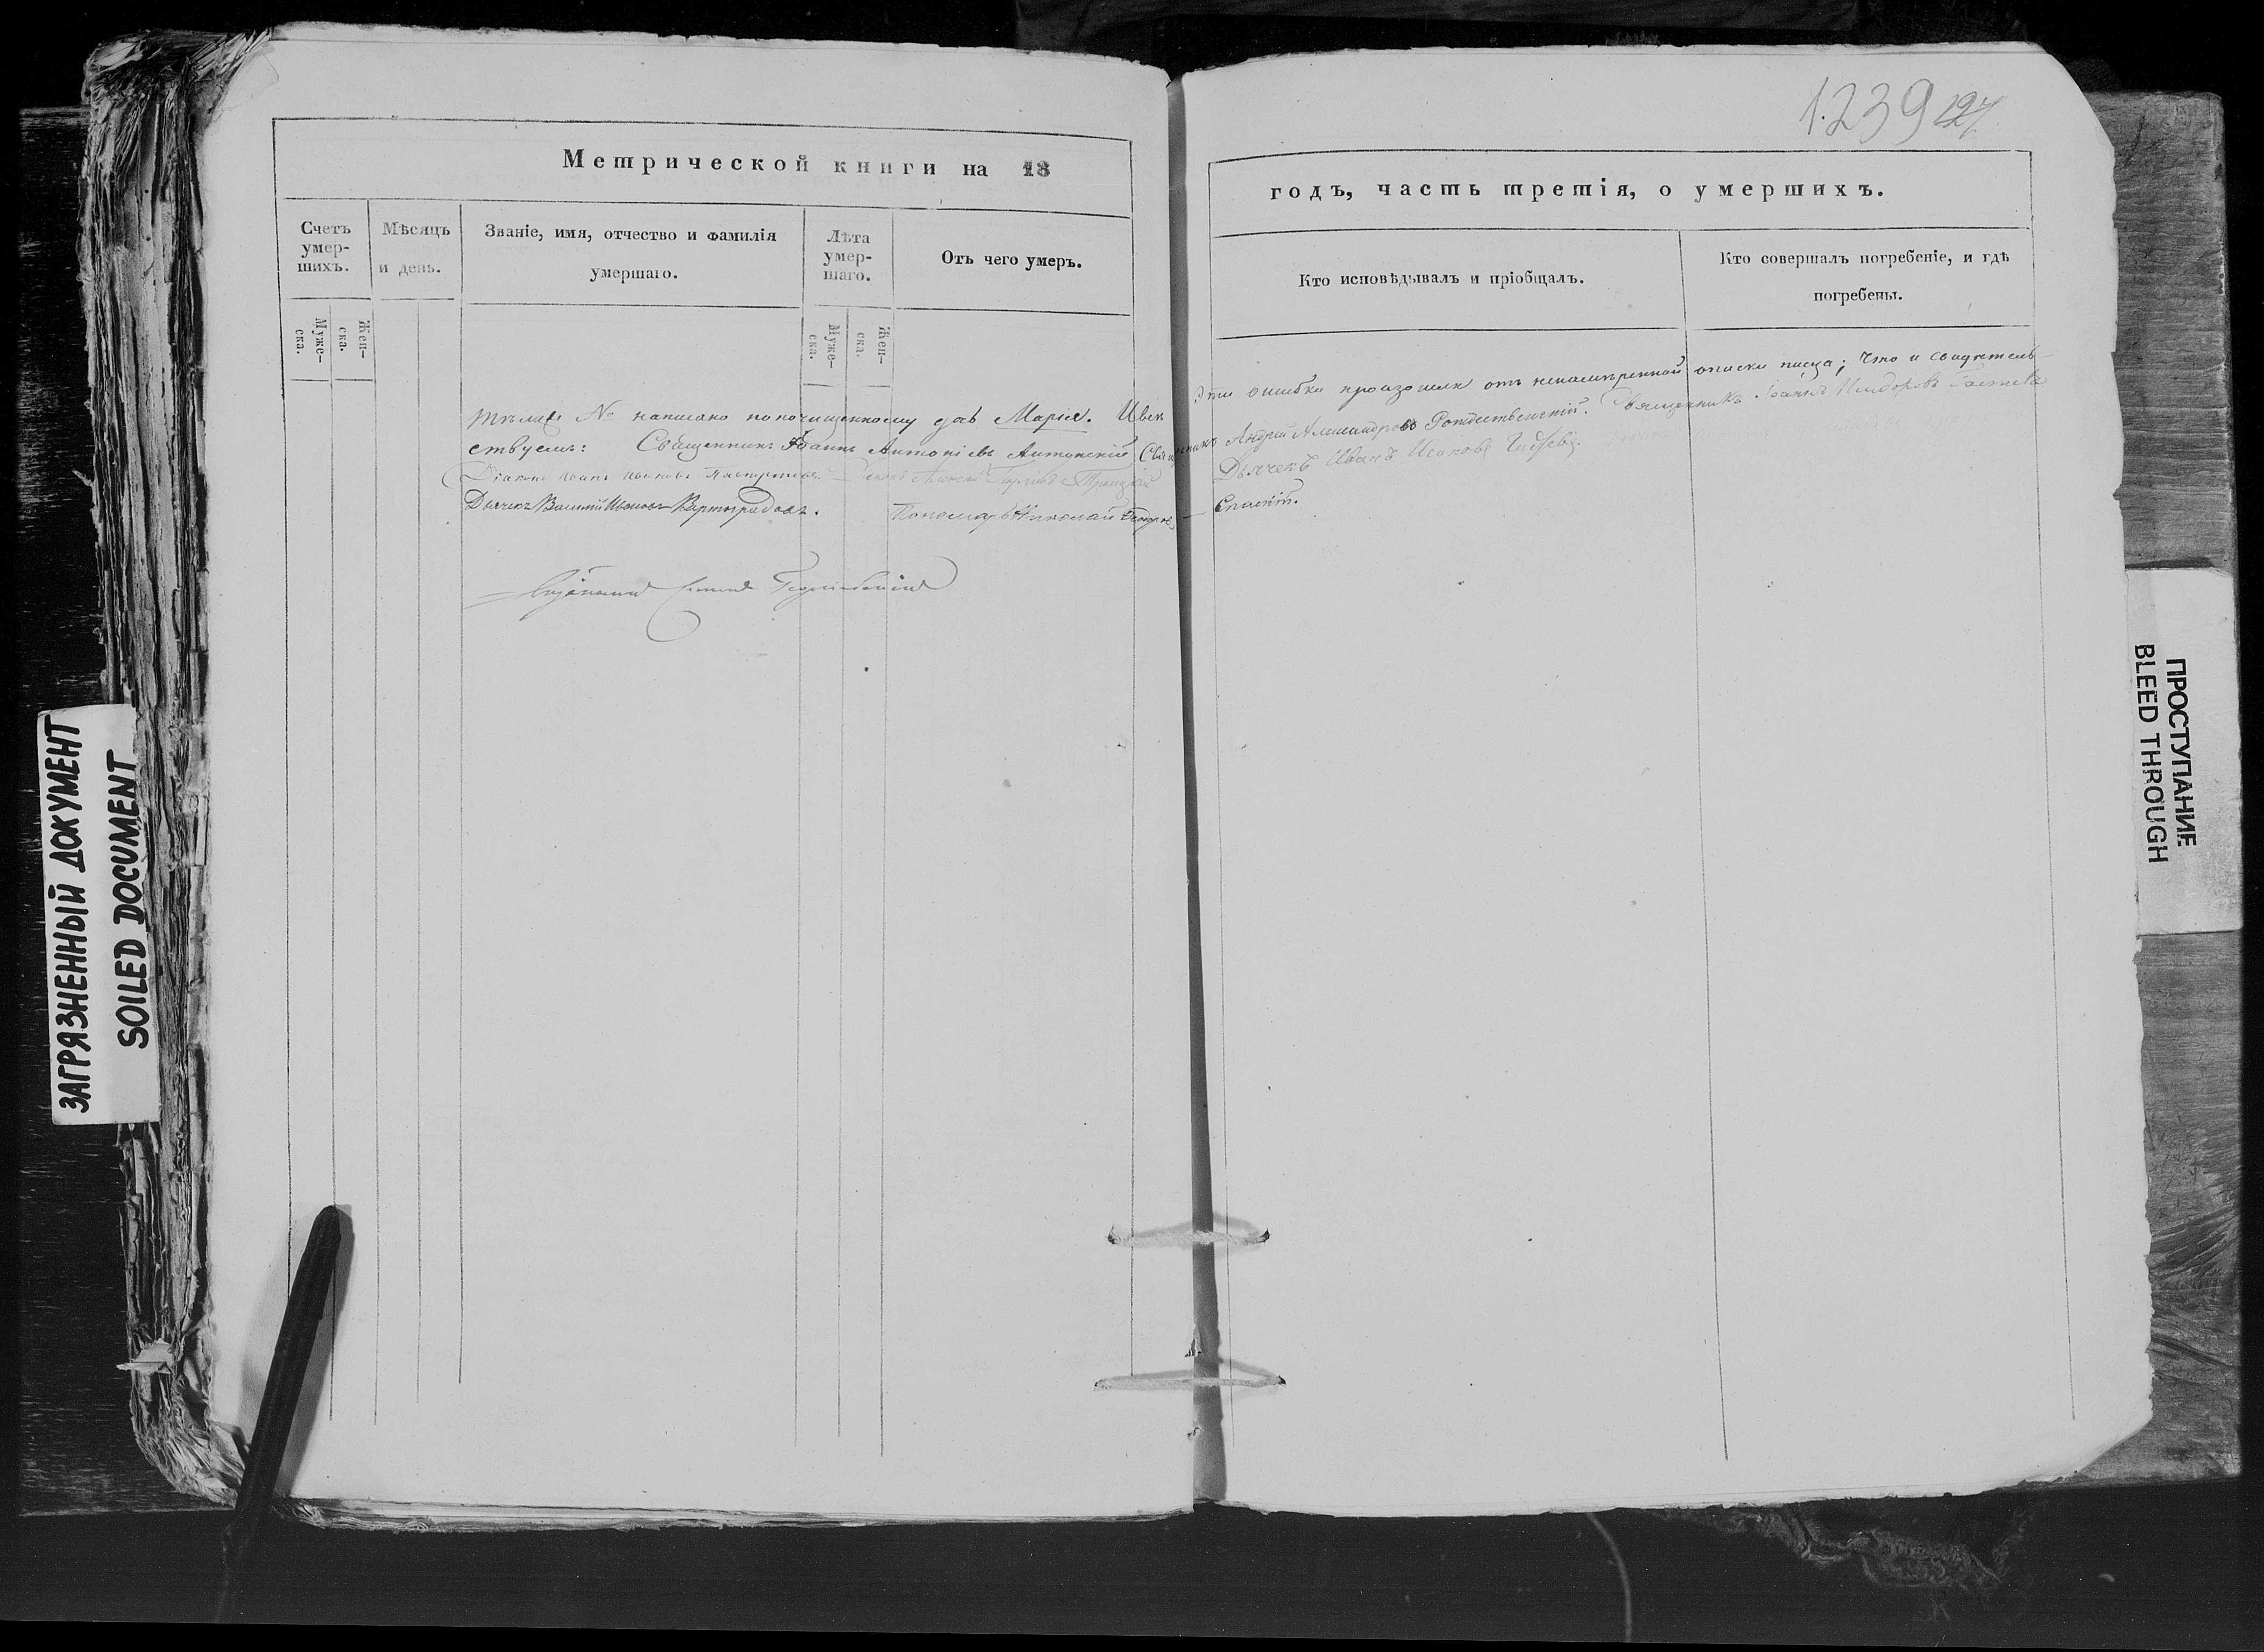 1.239
127
Метрической книги на 18
годъ, часть третія, о умершихъ.
Счетъ умер-
шихъ.
Мѣсяцъ
и день.
Званіе, имя, отчество и фамилія
умершаго.
Лѣта
умер-
шаго.
Отъ чего умеръ.
Кто исповѣдывалъ и пріобщалъ.
Кто совершалъ погребеніе, и гдѣ
погребены.
Муже-
ска.
Жен-
ска.
Муже-
ска.
Жен-
ска.
№ написано по почищенному Марія. эти ошибки произошли отъ ненамѣренной описки писца; Что и свидѣтель-
ствуемъ: Священникъ Іоаннъ Антоніевъ Антонскій Священникъ Андрей Александровъ Рождественскій. Священникъ Іоаннъ
Діаконъ Иванъ Ивановъ Діаконъ Алексей Троицкій Дьячекъ Иванъ
Дьячекъ Василій Ивановъ Вертоградовъ. Пономарь Николай Спасит.
ЗАГРЯЗНЕННЫЙ ДОКУМЕНТ
SOILED DOCUMENT
ПРОСТУПАНИЕ
BLEED THROUGH